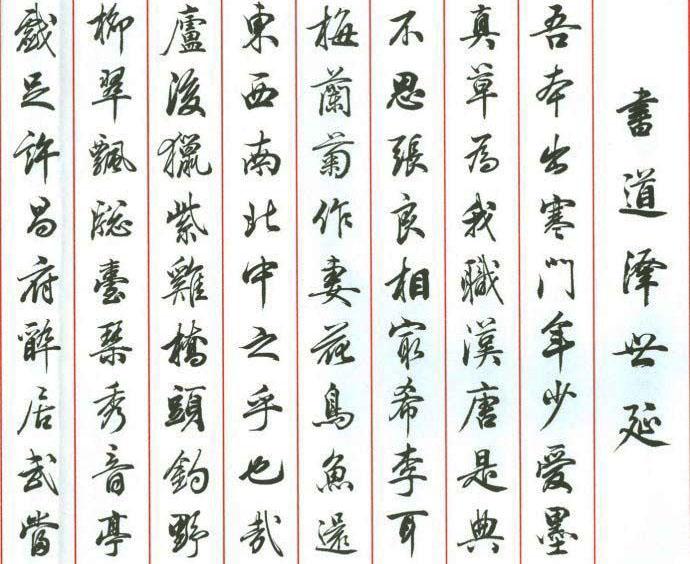 書道澤世延
吾本出寒門年少愛墨
真草為我職漢唐是典
不思張良相最希李耳
梅蘭菊作妻花鳥魚還
東西南北中之乎也哉
廬後獵紫雞橋頭釣野
柳翠飄臺琴秀音亭
戲足許昌府醉居武當